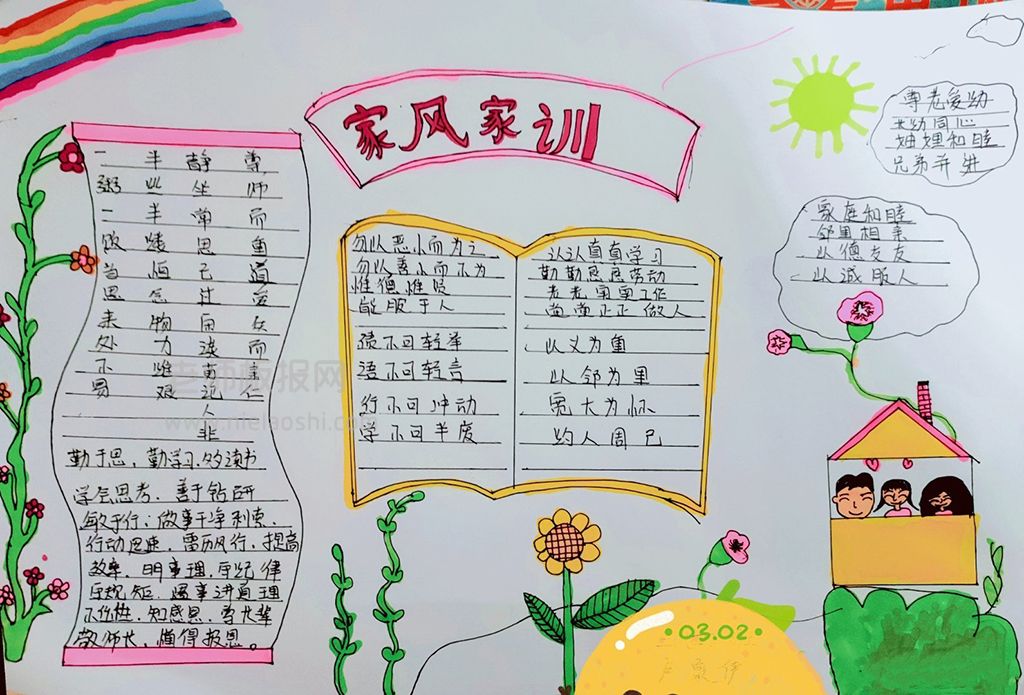 家风家训
一 半 静 尊
粥 丝 坐 师
一 半 常 而
饭 缕 思 重
当 恒 己 道
思 念 过 爱
来 物 闲 众
处 力 谈 而
不 维 莫 亲
易 艰 论 仁
人
非
勤于思，勤学习、多读书
学会思考、善于钻研
敏于行：做事干净利索、
行动迅速、雷厉风行、提高
效率、明事理、守纪律
守规矩、遇事讲道理
不任性、知感恩、尊长辈
敬师长、懂得报恩。
勿以恶小而为之
勿以善小而不为
惟德惟贤
能服于人
读不可轻举
语不可轻言
行不可冲动
学不可半废
认认真真学习
勤勤恳恳劳动
老老实实工作
堂堂正正做人
以义为重
以邻为里
宽大为怀
约人周己
尊老爱幼
长幼同心
妯娌和睦
兄弟并进
家庭和睦
邻里相亲
以德交友
以诚服人
老师板报网
03.02